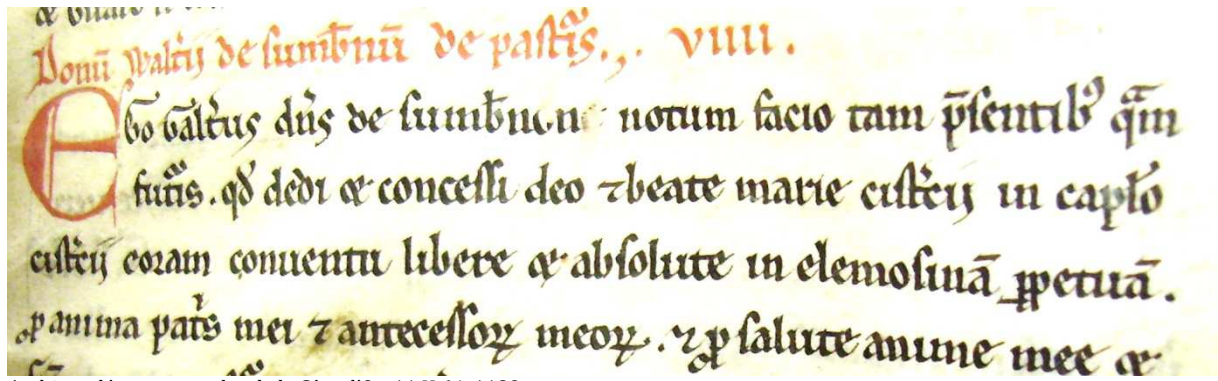 Donū Walt'ij de sumb'nū de past'is. . VIIII .
Ego Galt'us dn̄s de sumb'nun notum facio tam p̄sentib' qᵃm
futᵃis . qd' dedi et concessi deo ⁊ beate marie cist'cij in cap'lo
cist'cij coram conuentu libere et absolute in elemosinā ꝑpetuā .
ꝓ anima pat's mei ⁊ antecessoꝝ meoꝝ . ⁊ ꝓ salute anime mee et